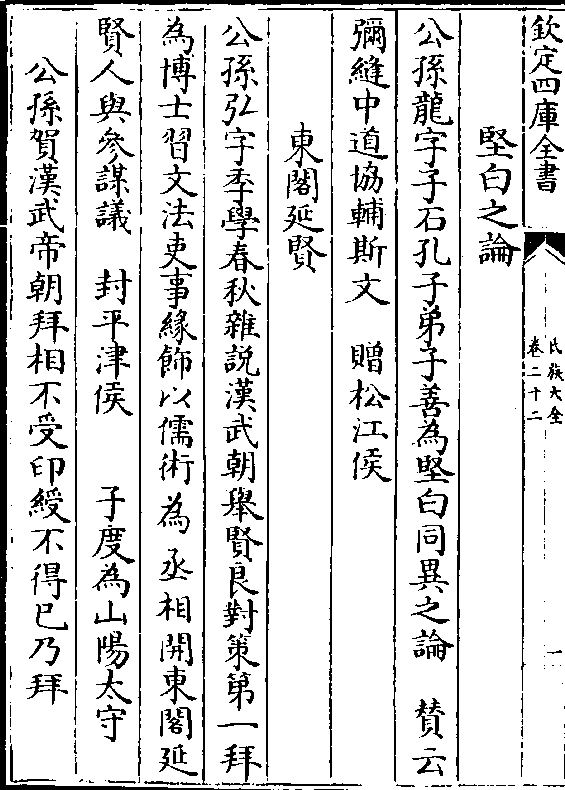 欽定四庫全書
氏族大全
卷二十二
一
堅白之論
公孫龍字子石孔子弟子善為堅白同異之論　賛云
彌縫中道協輔斯文　贈松江侯
東閣延賢
公孫弘字季學春秋雜説漢武朝舉賢良對策第一拜
為博士習文法吏事緣飾以儒術為丞相開東閣延
賢人與參謀議　封平津侯　子度為山陽太守
公孫賀漢武帝朝拜相不受印綬不得已乃拜